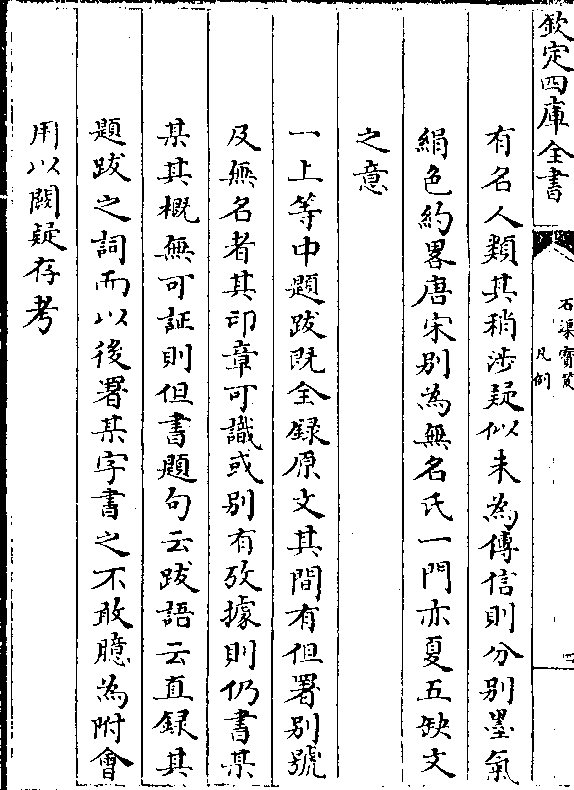 欽定四庫全書
石渠寶笈
凡例
四
有名人類其稍涉疑似未為傳信則分別墨氣
絹色約畧唐宋別為無名氏一門亦夏五缺文
之意
一上等中題跋既全録原文其間有但署別號
及無名者其印章可識或別有攷據則仍書某
某其概無可証則但書題句云跋語云直録其
題跋之詞而以後署某字書之不敢臆為附會
用以闕疑存考